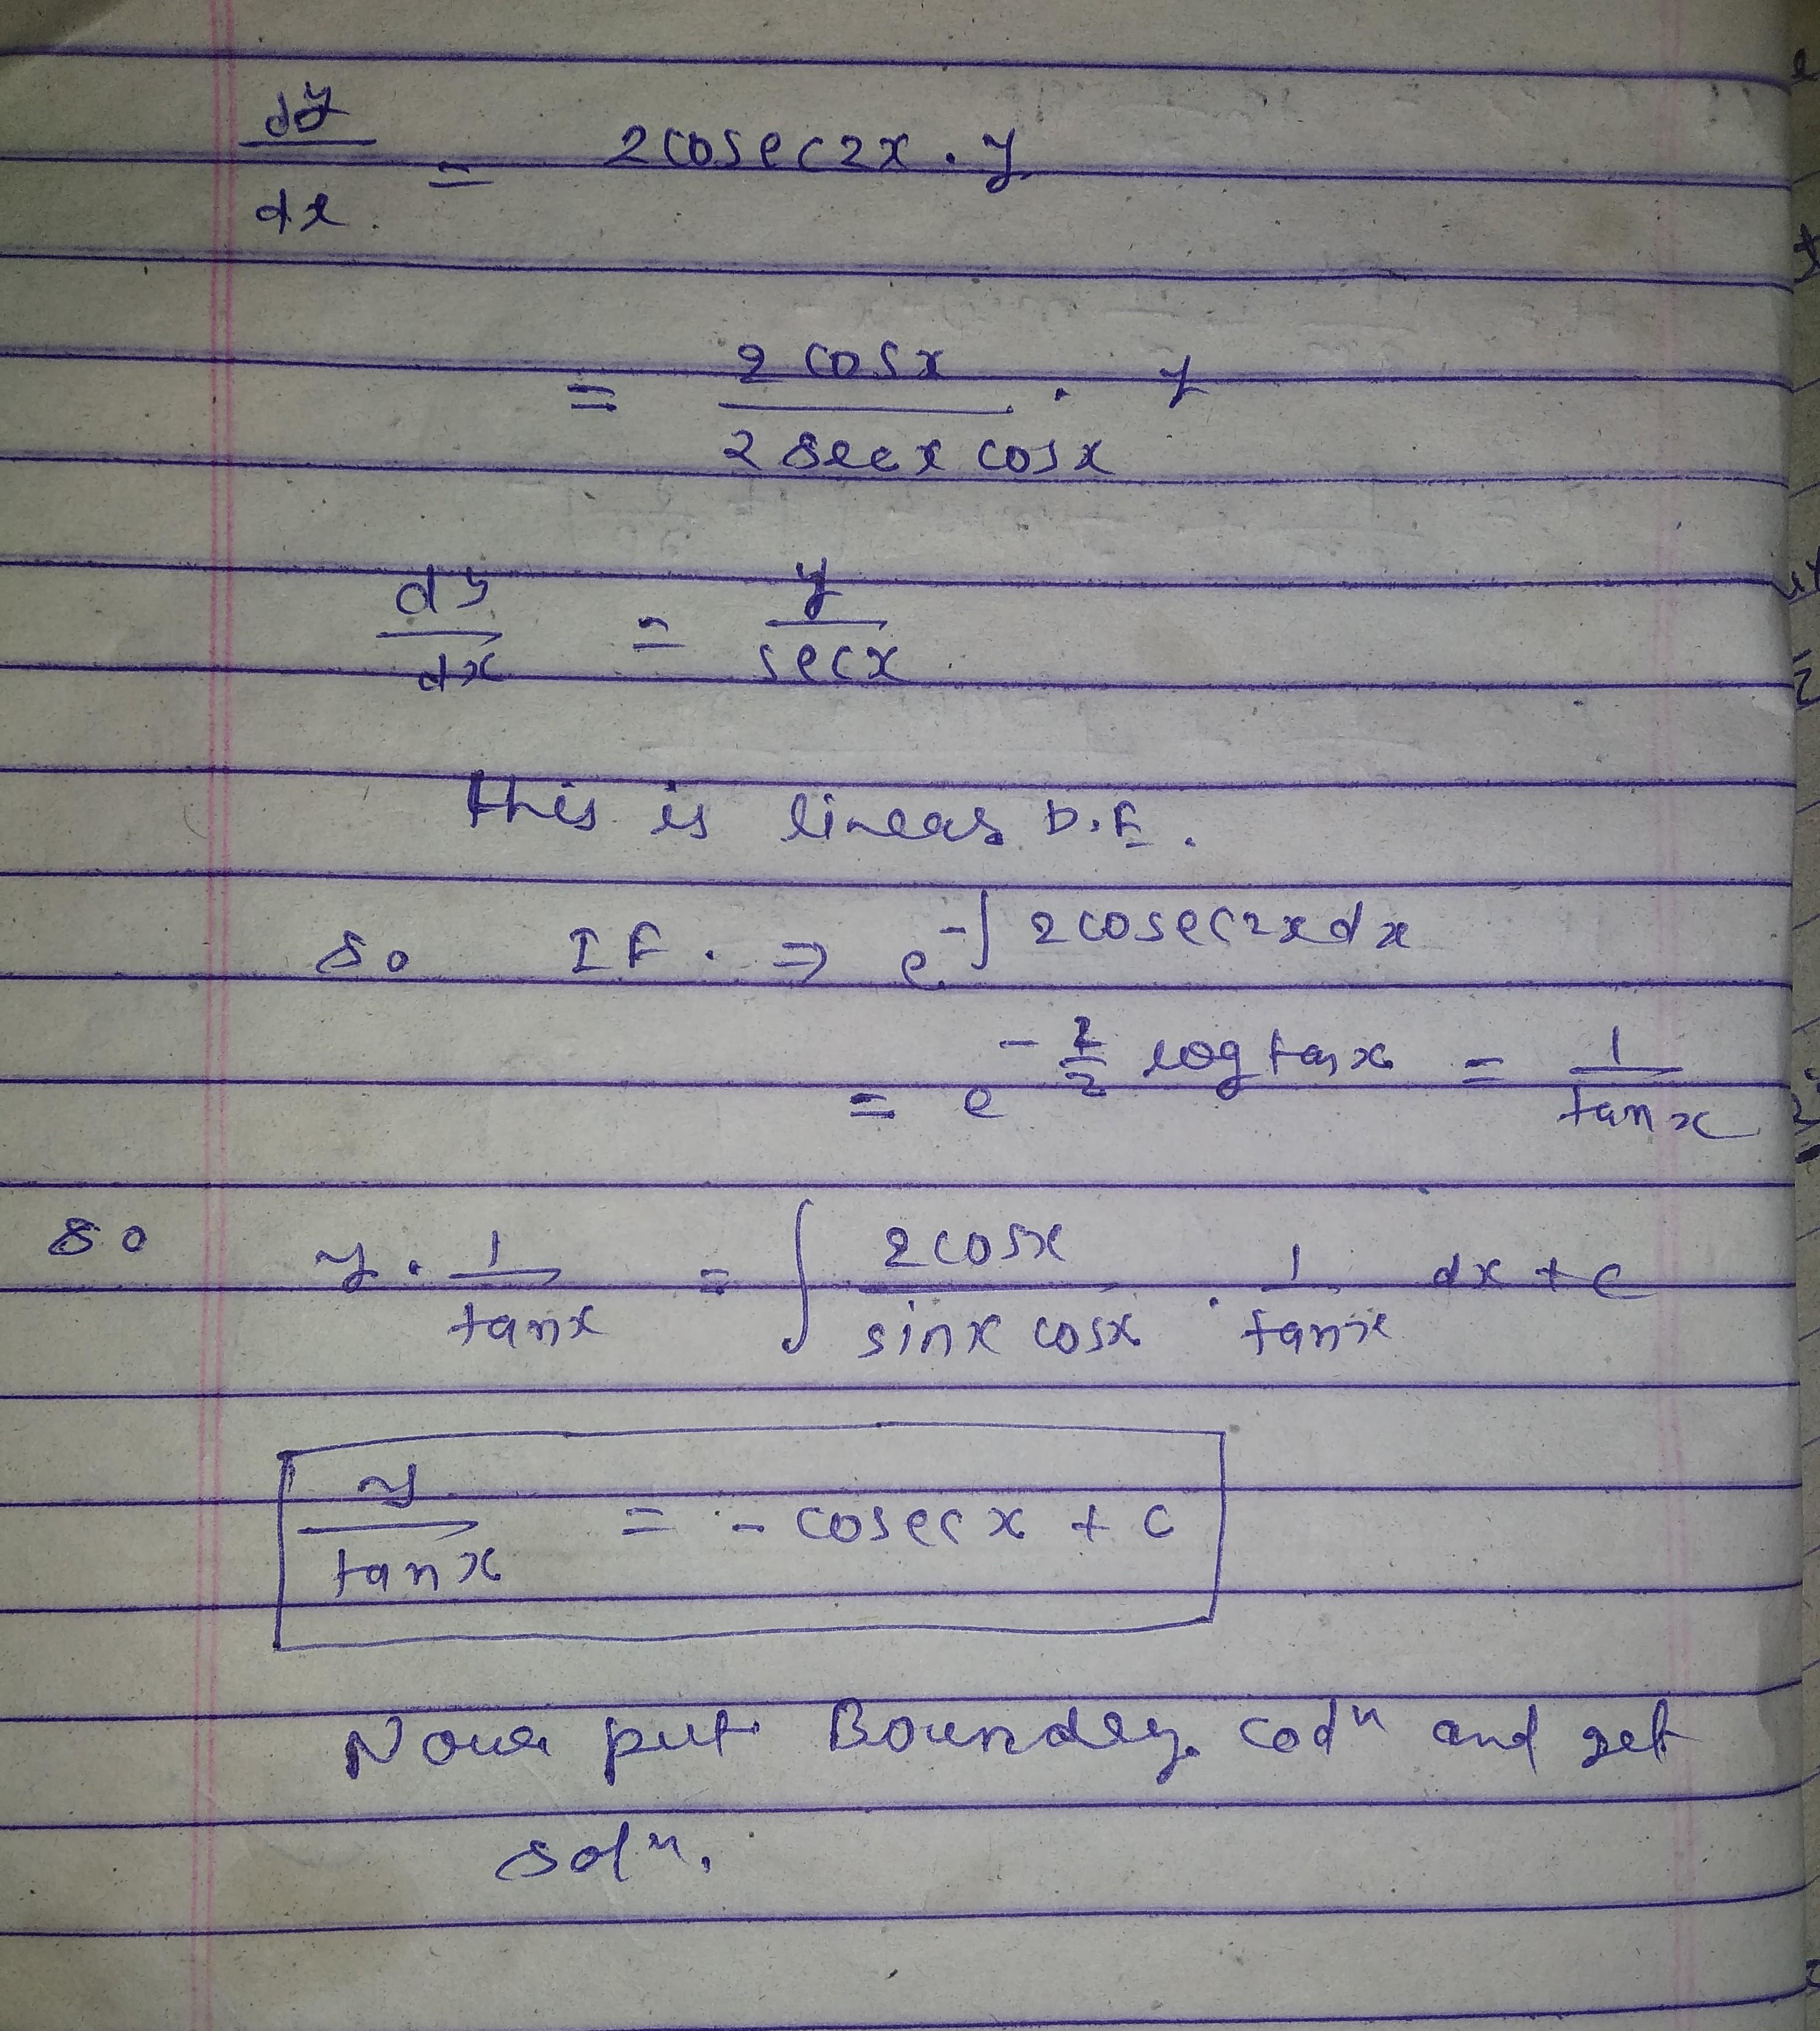 dy/dx = 2cosec2x . y
= 2 cosx / 2 secx cosx . y
dy/dx = y / secx
this is linear D.E.
So IF. ⇒ e^-∫ 2cosec2x dx
= e^-2/2 log tanx = 1/tanx
So y . 1/tanx = ∫ 2cosx / sinx cosx . 1/tanx dx + c
y/tanx = - cosec x + c
Now put Boundry cod^n and get
sol^n.